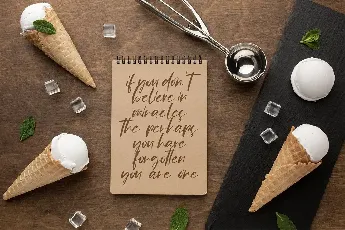 if you don't
believe in
miracles
the perhaps
you have
forgotten
you are one